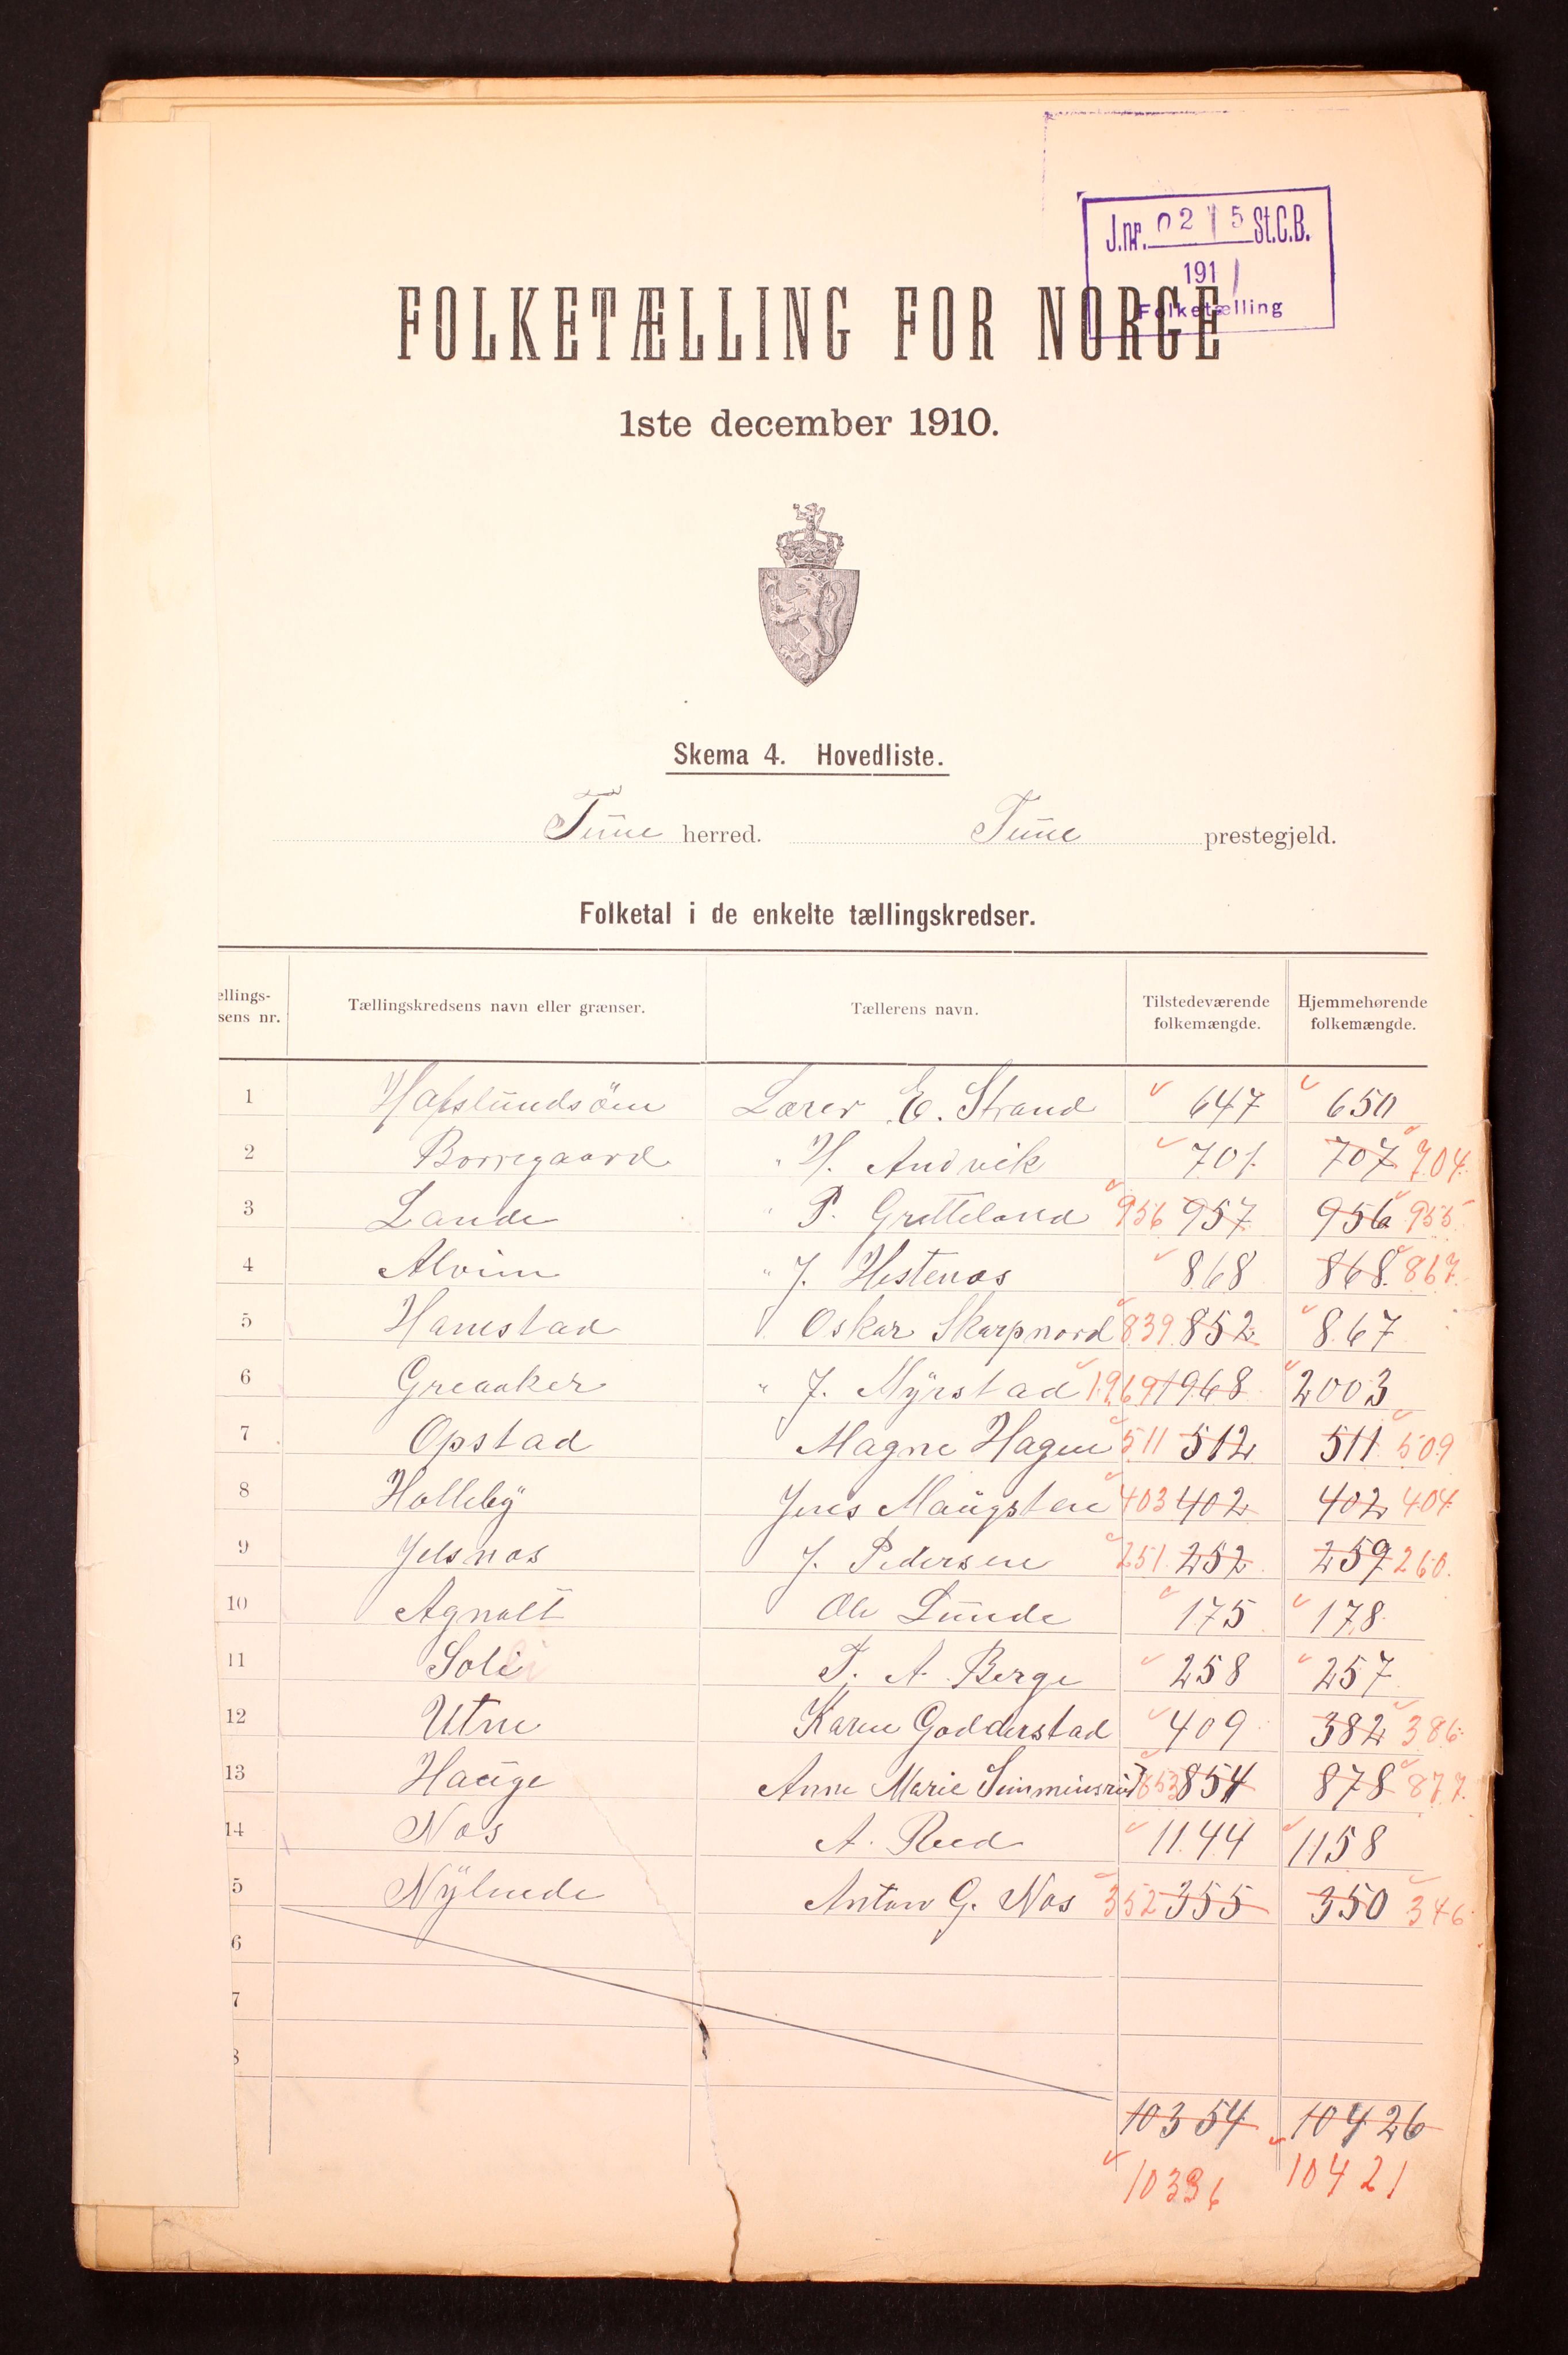 J.nr. 0215 St.C.B.
1911
Folketælling
FOLKETÆLLING FOR NORGE
1ste december 1910.
Skema 4. Hovedliste.
Tune herred. Tune prestegjeld.
Folketal i de enkelte tællingskredser.
ellings- sens nr. Tællingskredsens navn eller grænser. Tællerens navn. Tilstedeværende folkemængde. Hjemmehørende folkemængde.
1 Hafslundsöen Lærer E. Strand 647 650
2 Borregaard " H. Andvik 701 707 704
3 Lande " P. Gretteland 956 957 956 955
4 Alvim " J. Hestenæs 868 868 867
5 Hanestad Oskar Skarpnord 839 852 867
6 Greaaker " J. Myrstad 1969 1968 2003
7 Opstad Magne Hagen 511 512 511 509
8 Holleby Jens Maugsten 403 402 402 404
9 Jelsnæs J. Pedersen 251 252 259 260
10 Agnalt Ole Lunde 175 178
11 Soli T. A. Berge 258 257
12 Utne Karen Godderstad 409 382 386
13 Hauge Anne Marie 853 854 878 877
14 Næs A. Reed 1144 1158
5 Nylende Anton G. Næs 352 355 350 346
6
7
8
10354 10426
10396 10421